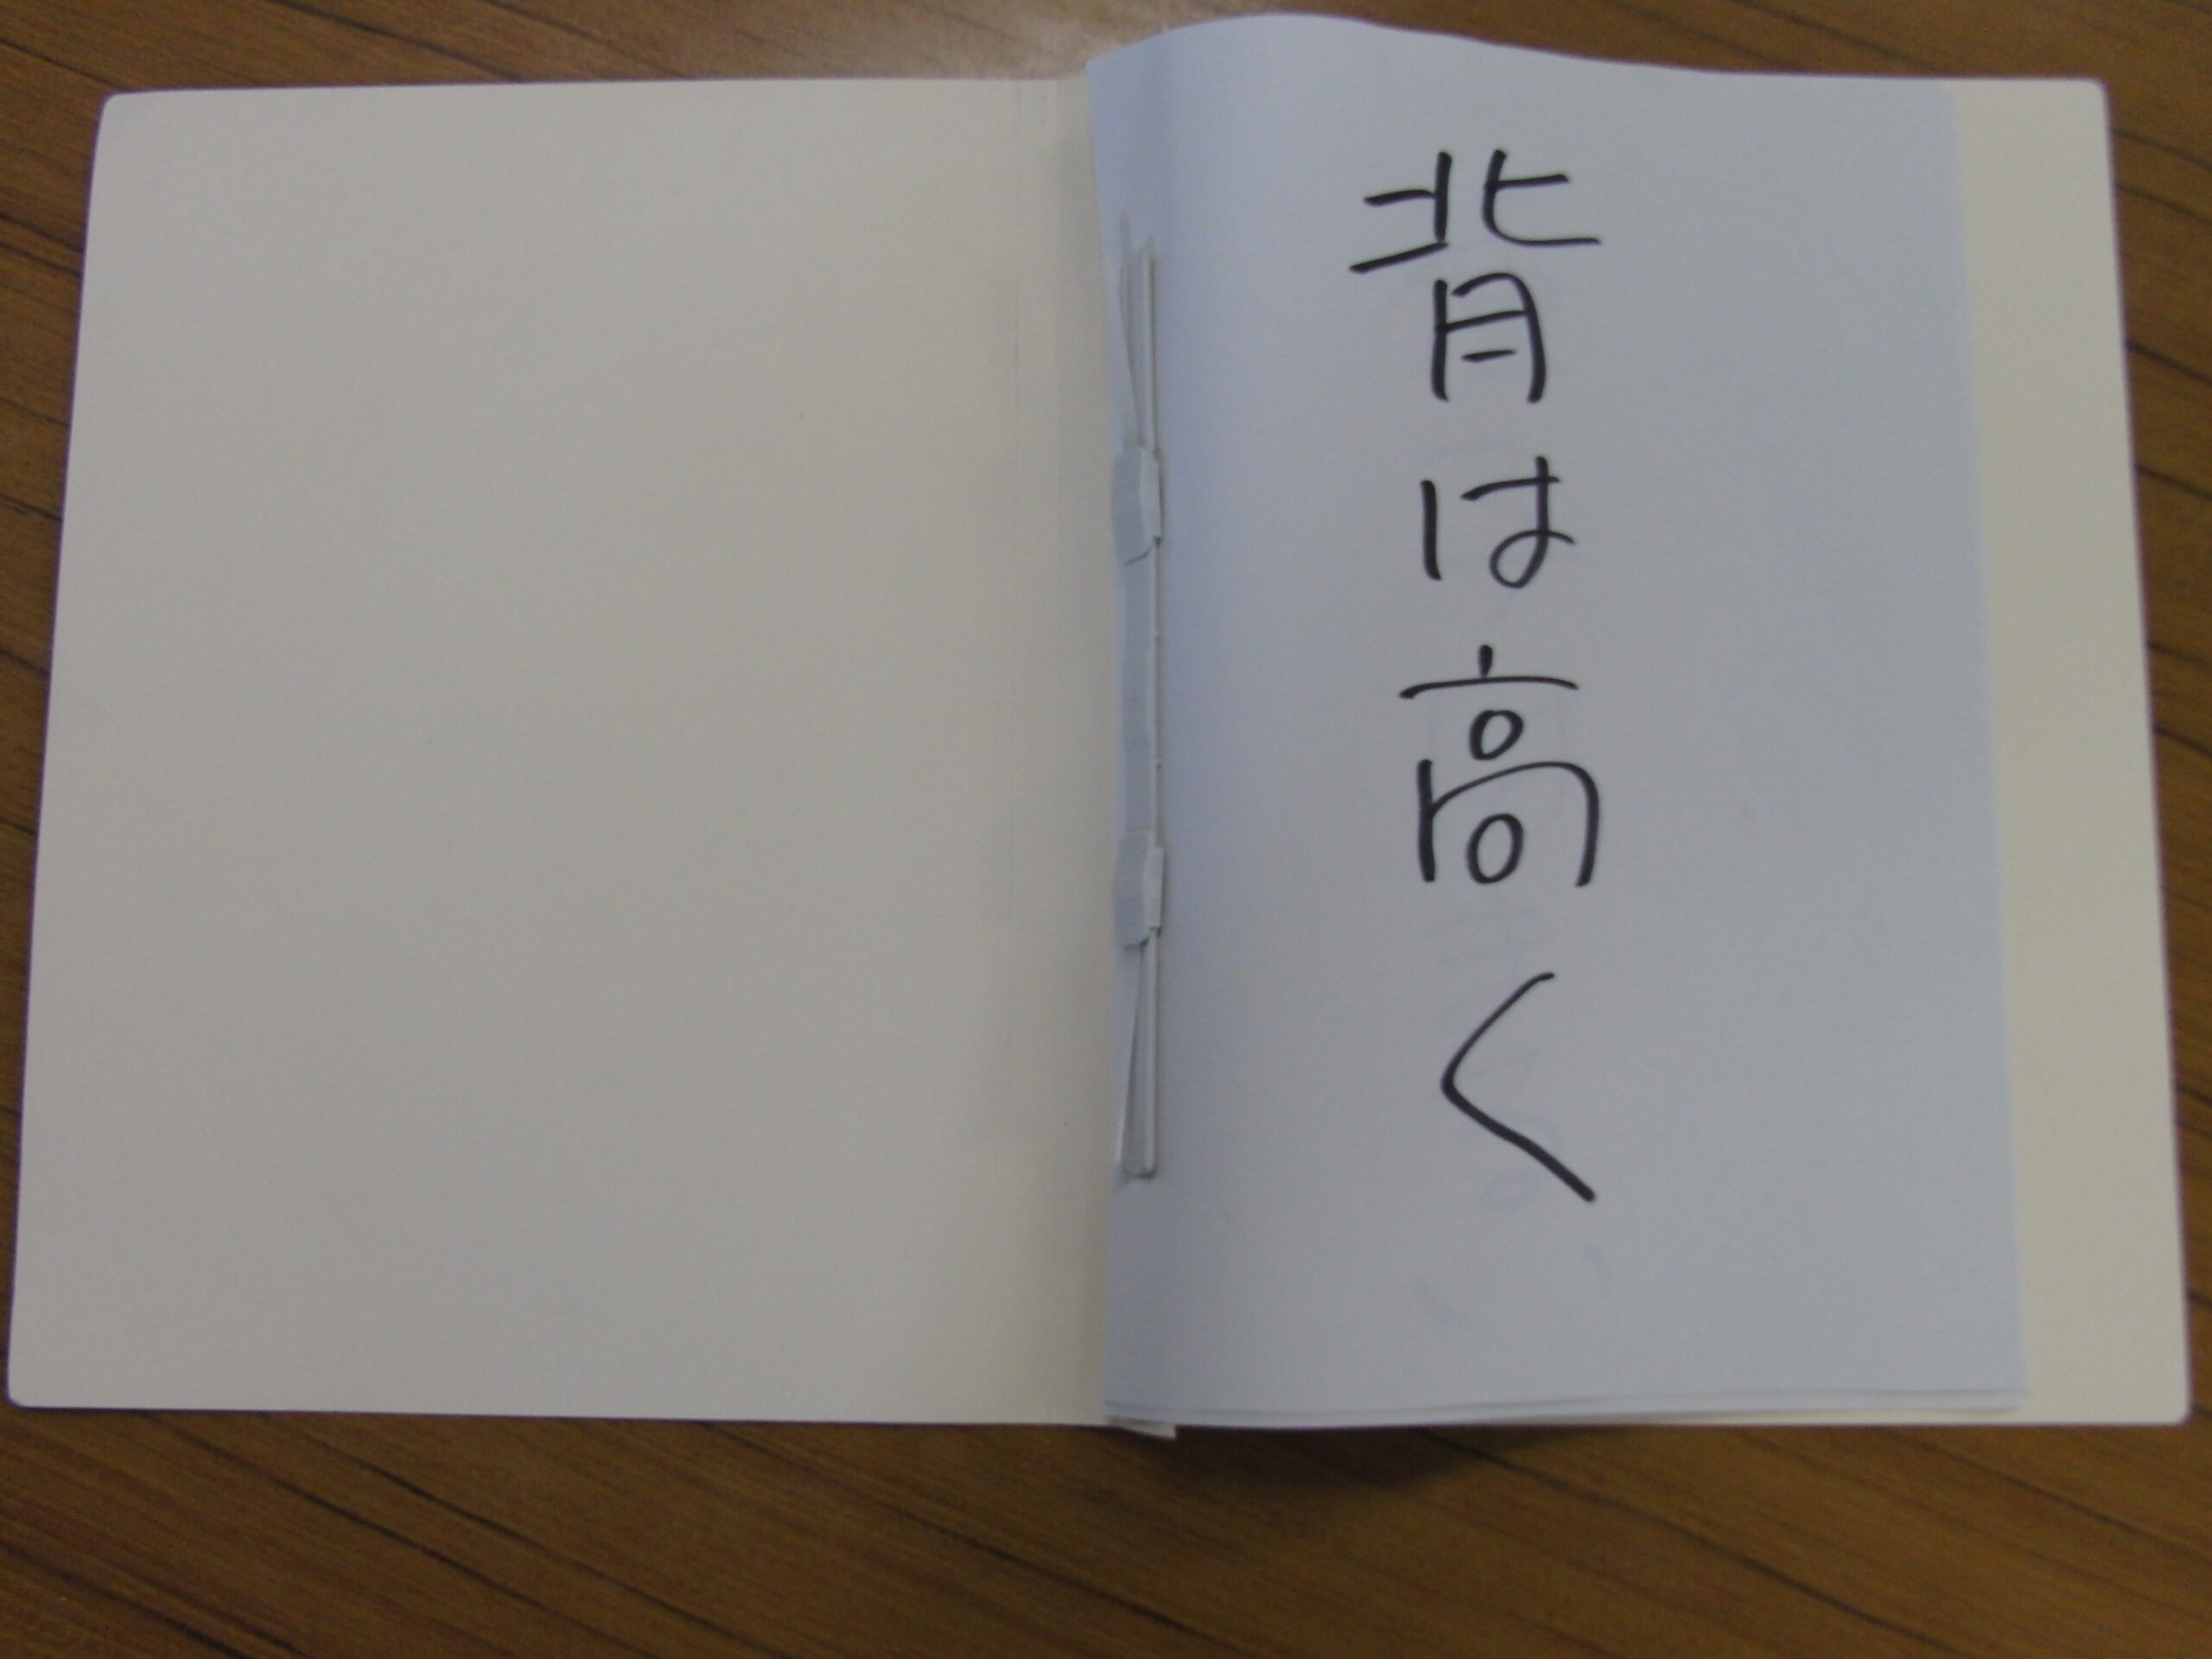 背は高く